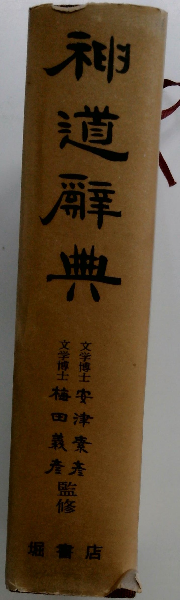 神道辭典
文学博士 安津素彦
文学博士 梅田義彦
監修
堀書店